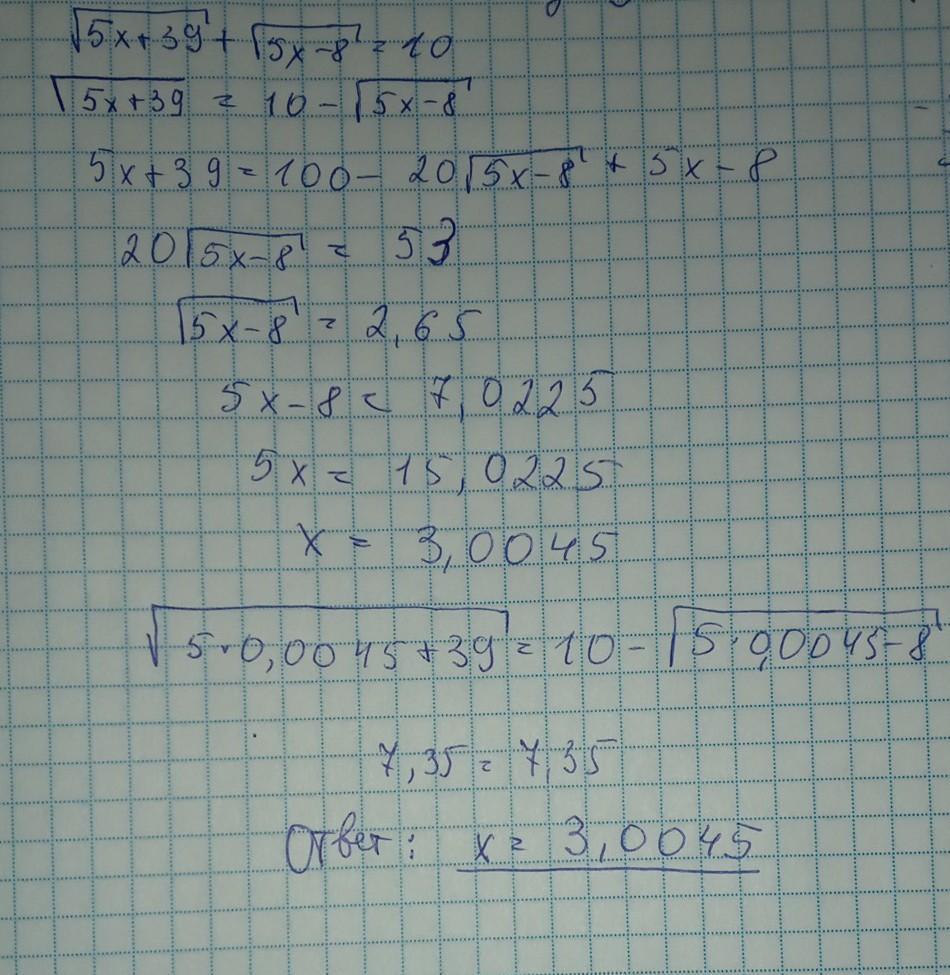 √5x+39 + √5x-8 = 10
√5x+39 = 10 - √5x-8
5x+39 = 100 - 20√5x-8 + 5x-8
20√5x-8 = 53
√5x-8 = 2,65
5x-8 = 7,0225
5x = 15,0225
x = 3,0045
√5·0,0045+39 = 10 - √5·0,0045-8
7,35 = 7,35
Ответ: x = 3,0045